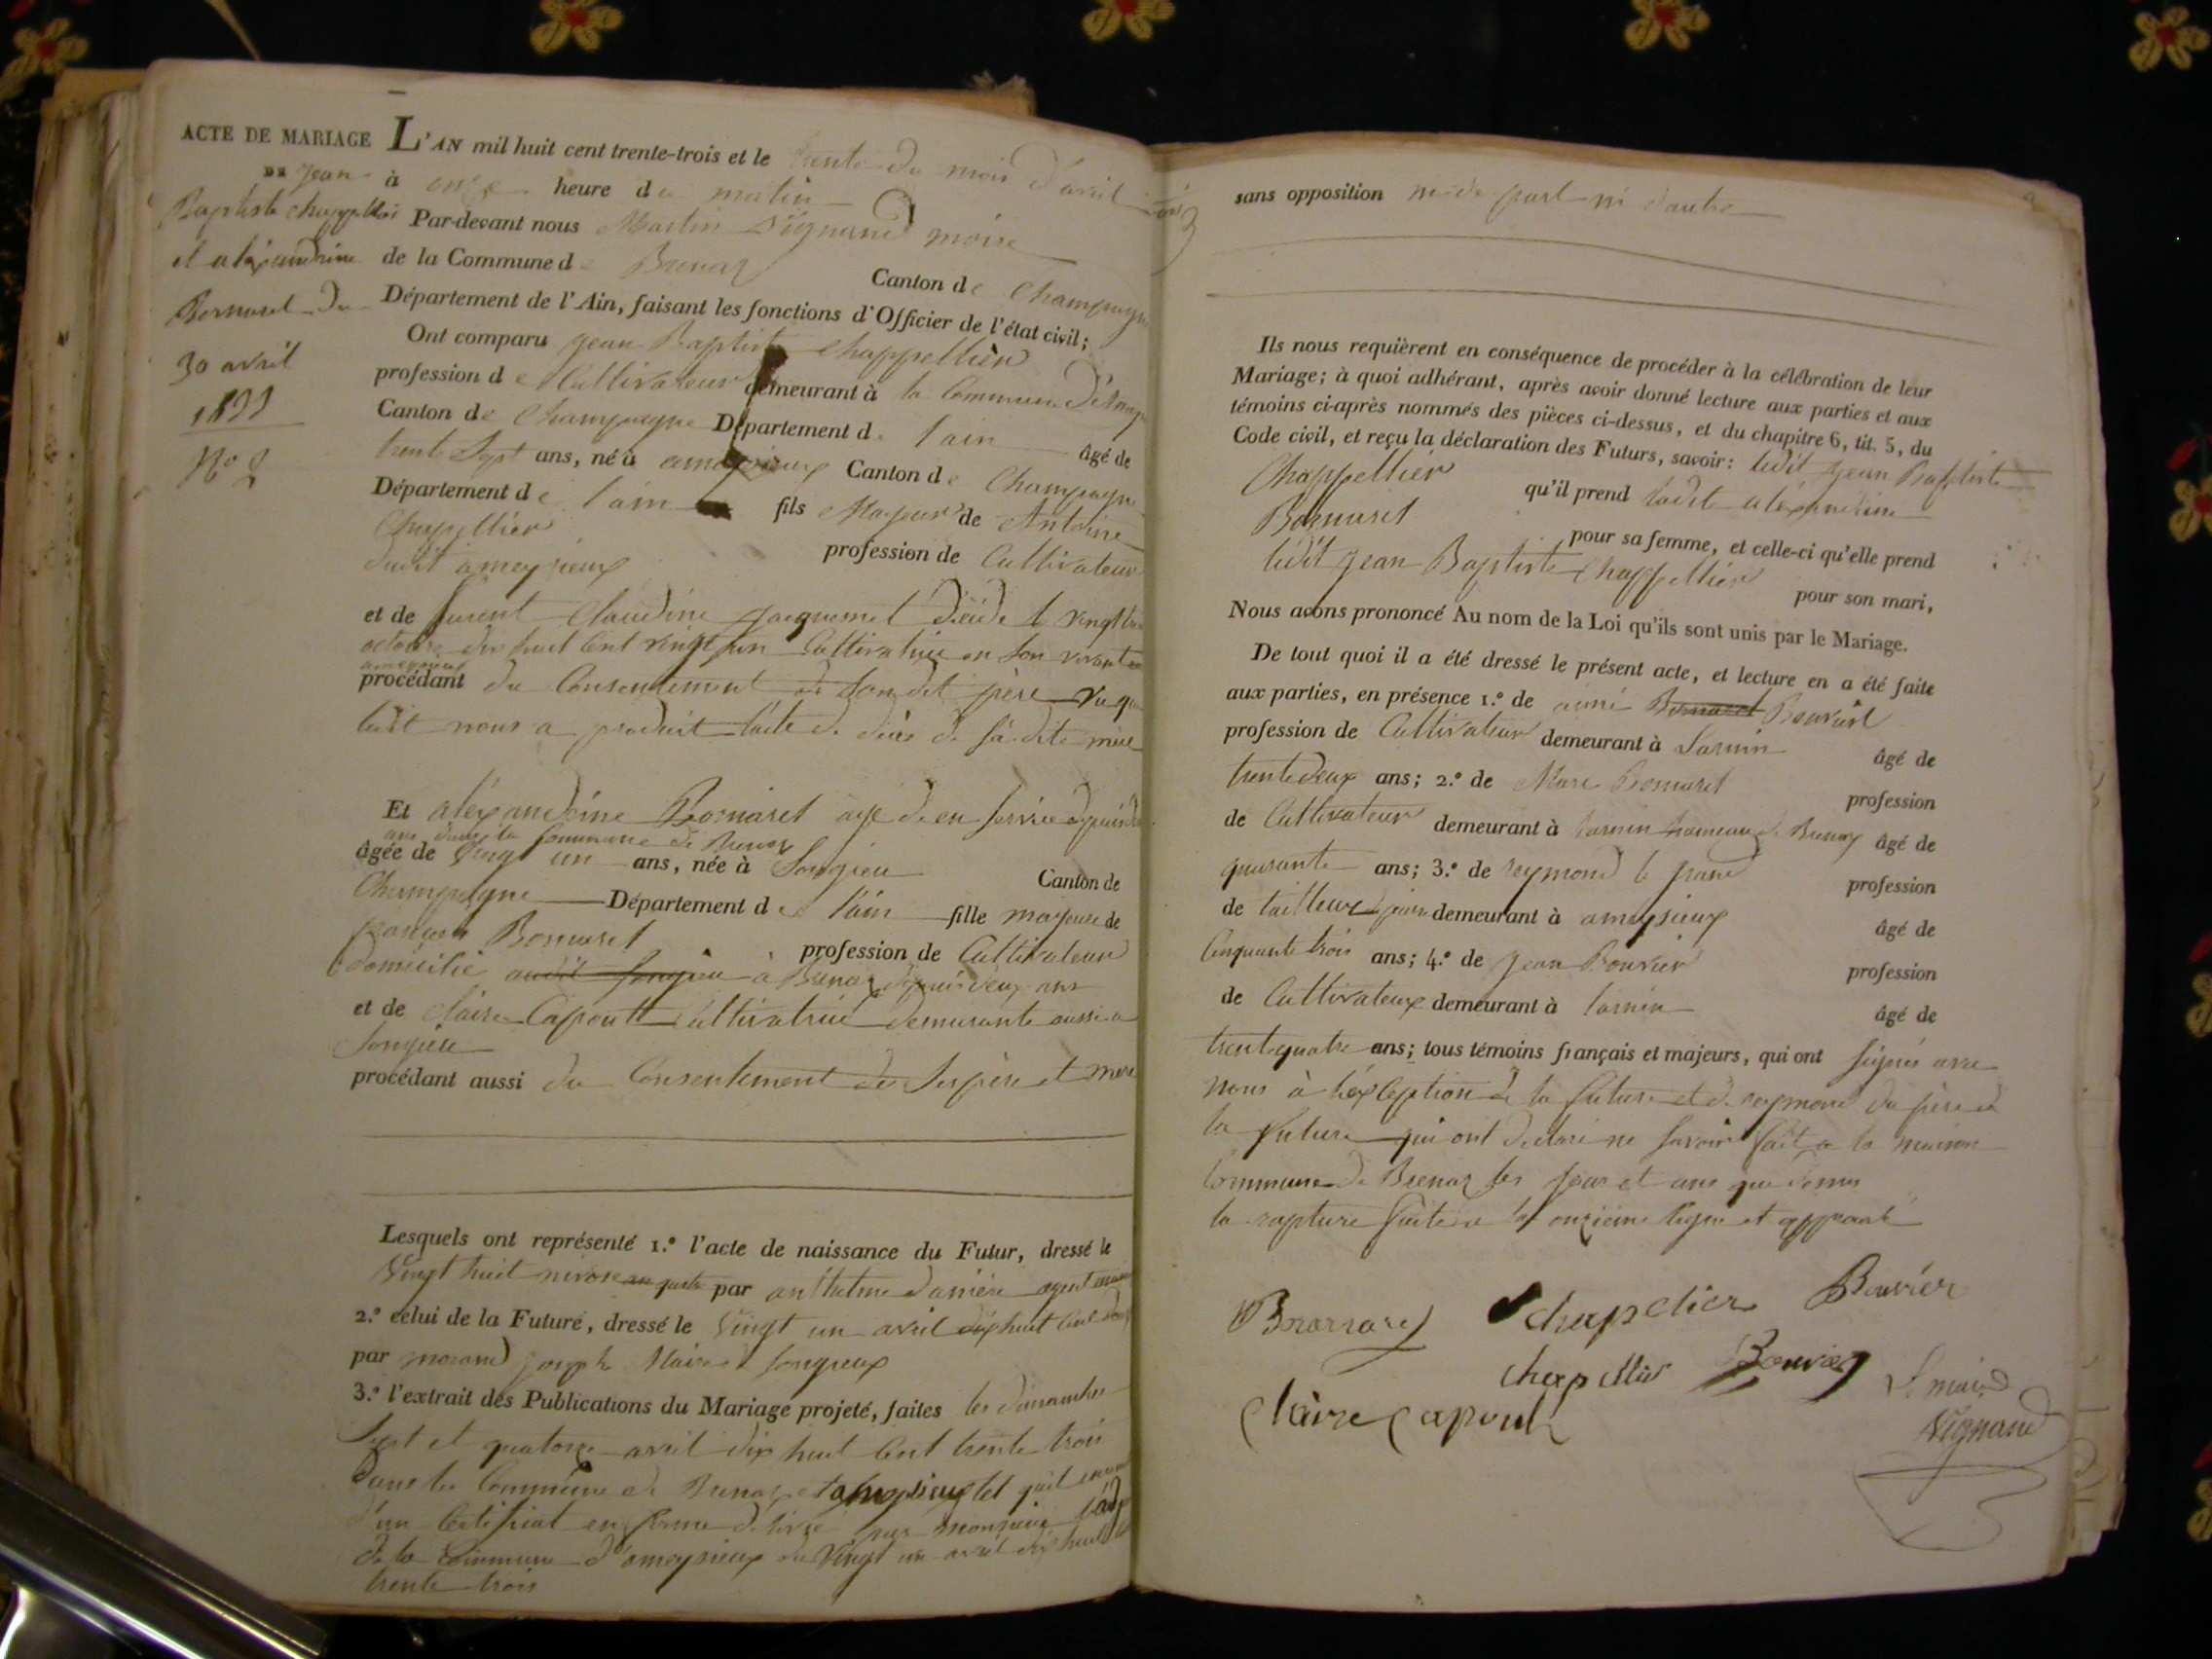 ACTE DE MARIAGE
DE Jean
Baptiste Chappellier
et alexandrine
Bornaret Du
30 avril
1833
No 2
L'AN mil huit cent trente-trois et le trente du mois d'avril
à onze heure du matin
Par-devant nous Martin Vignand maire
de la Commune de Brenaz Canton de Champagne
Département de l'Ain, faisant les fonctions d'Officier de l'état civil;
Ont comparu jean Baptiste Chappellier
profession de Cultivateur demeurant à la Commune
Canton de Champagne Département de lain âgé de
trente Sept ans, né à ameyzieux Canton de Champagne
Département de lain fils Majeur de Antoine
Chapellier profession de Cultivateur
dudit ameyzieux
et de Claudine jacquemet
octobre dix huit Cent vingt un Cultivatrice en son vivant
ameyzieux
procédant du Consentement de son dit père
nous a produit l'acte de décès de sa dite mère
Et aléxandrine Bornaret en service depuis
ans dans la Commune de Brenaz
âgée de vingt un ans, née à Songieu Canton de
Champagne Département de l'ain fille majeure de
françois Bornaret profession de Cultivateur
domicilié audit Songieu à Brenaz depuis deux ans
et de claire Capoult Cultivatrice demeurante aussi a
Songieu
procédant aussi du Consentement de Ses père et mere
Lesquels ont représenté 1.º l'acte de naissance du Futur, dressé le
Vingt huit nivose an quatre par anthelme agent
2.º celui de la Future, dressé le Vingt un avril dix huit Cent
par morand joseph Maire Songieux
3.º l'extrait des Publications du Mariage projeté, faites les dimanches
Sept et quatorze avril dix huit Cent trente trois
Dans les Commune de Brenaz et ameyzieux tel
d'un Certificat en forme délivré par monsieur
de la Commune d'ameyzieux du Vingt un avril dix huit
trente trois
sans opposition ni de part ni d'autre
Ils nous requièrent en conséquence de procéder à la célébration de leur
Mariage; à quoi adhérant, après avoir donné lecture aux parties et aux
témoins ci-après nommés des pièces ci-dessus, et du chapitre 6, tit. 5, du
Code civil, et reçu la déclaration des Futurs, savoir: ledit Jean Baptiste
Chappellier qu'il prend ladite aléxandrine
Bornaret pour sa femme, et celle-ci qu'elle prend
ledit jean Baptiste Chappellier pour son mari,
Nous avons prononcé Au nom de la Loi qu'ils sont unis par le Mariage.
De tout quoi il a été dressé le présent acte, et lecture en a été faite
aux parties, en présence 1.º de aimé Bornaret Bouvier
profession de Cultivateur demeurant à Larnin âgé de
trente deux ans; 2.º de Marc Bornaret profession
de Cultivateur demeurant à larnin hameau de Brenaz âgé de
quarante ans; 3.º de reymond profession
de tailleur demeurant à ameyzieux âgé de
Cinquante trois ans; 4.º de jean Bouvier profession
de Cultivateur demeurant à larnin âgé de
trente quatre ans; tous témoins français et majeurs, qui ont signés avec
nous à l'éxception de la future et de reymond du père de
la future qui ont déclaré ne savoir fait a la maison
Commune de Brenaz les jour et ans que dessus
la rapture faite a la onzieme ligne et approuvé
Bornaret
chapelier
Bouvier
chapellier
Bouvier
Claire Capoult
Le maire
Vignand